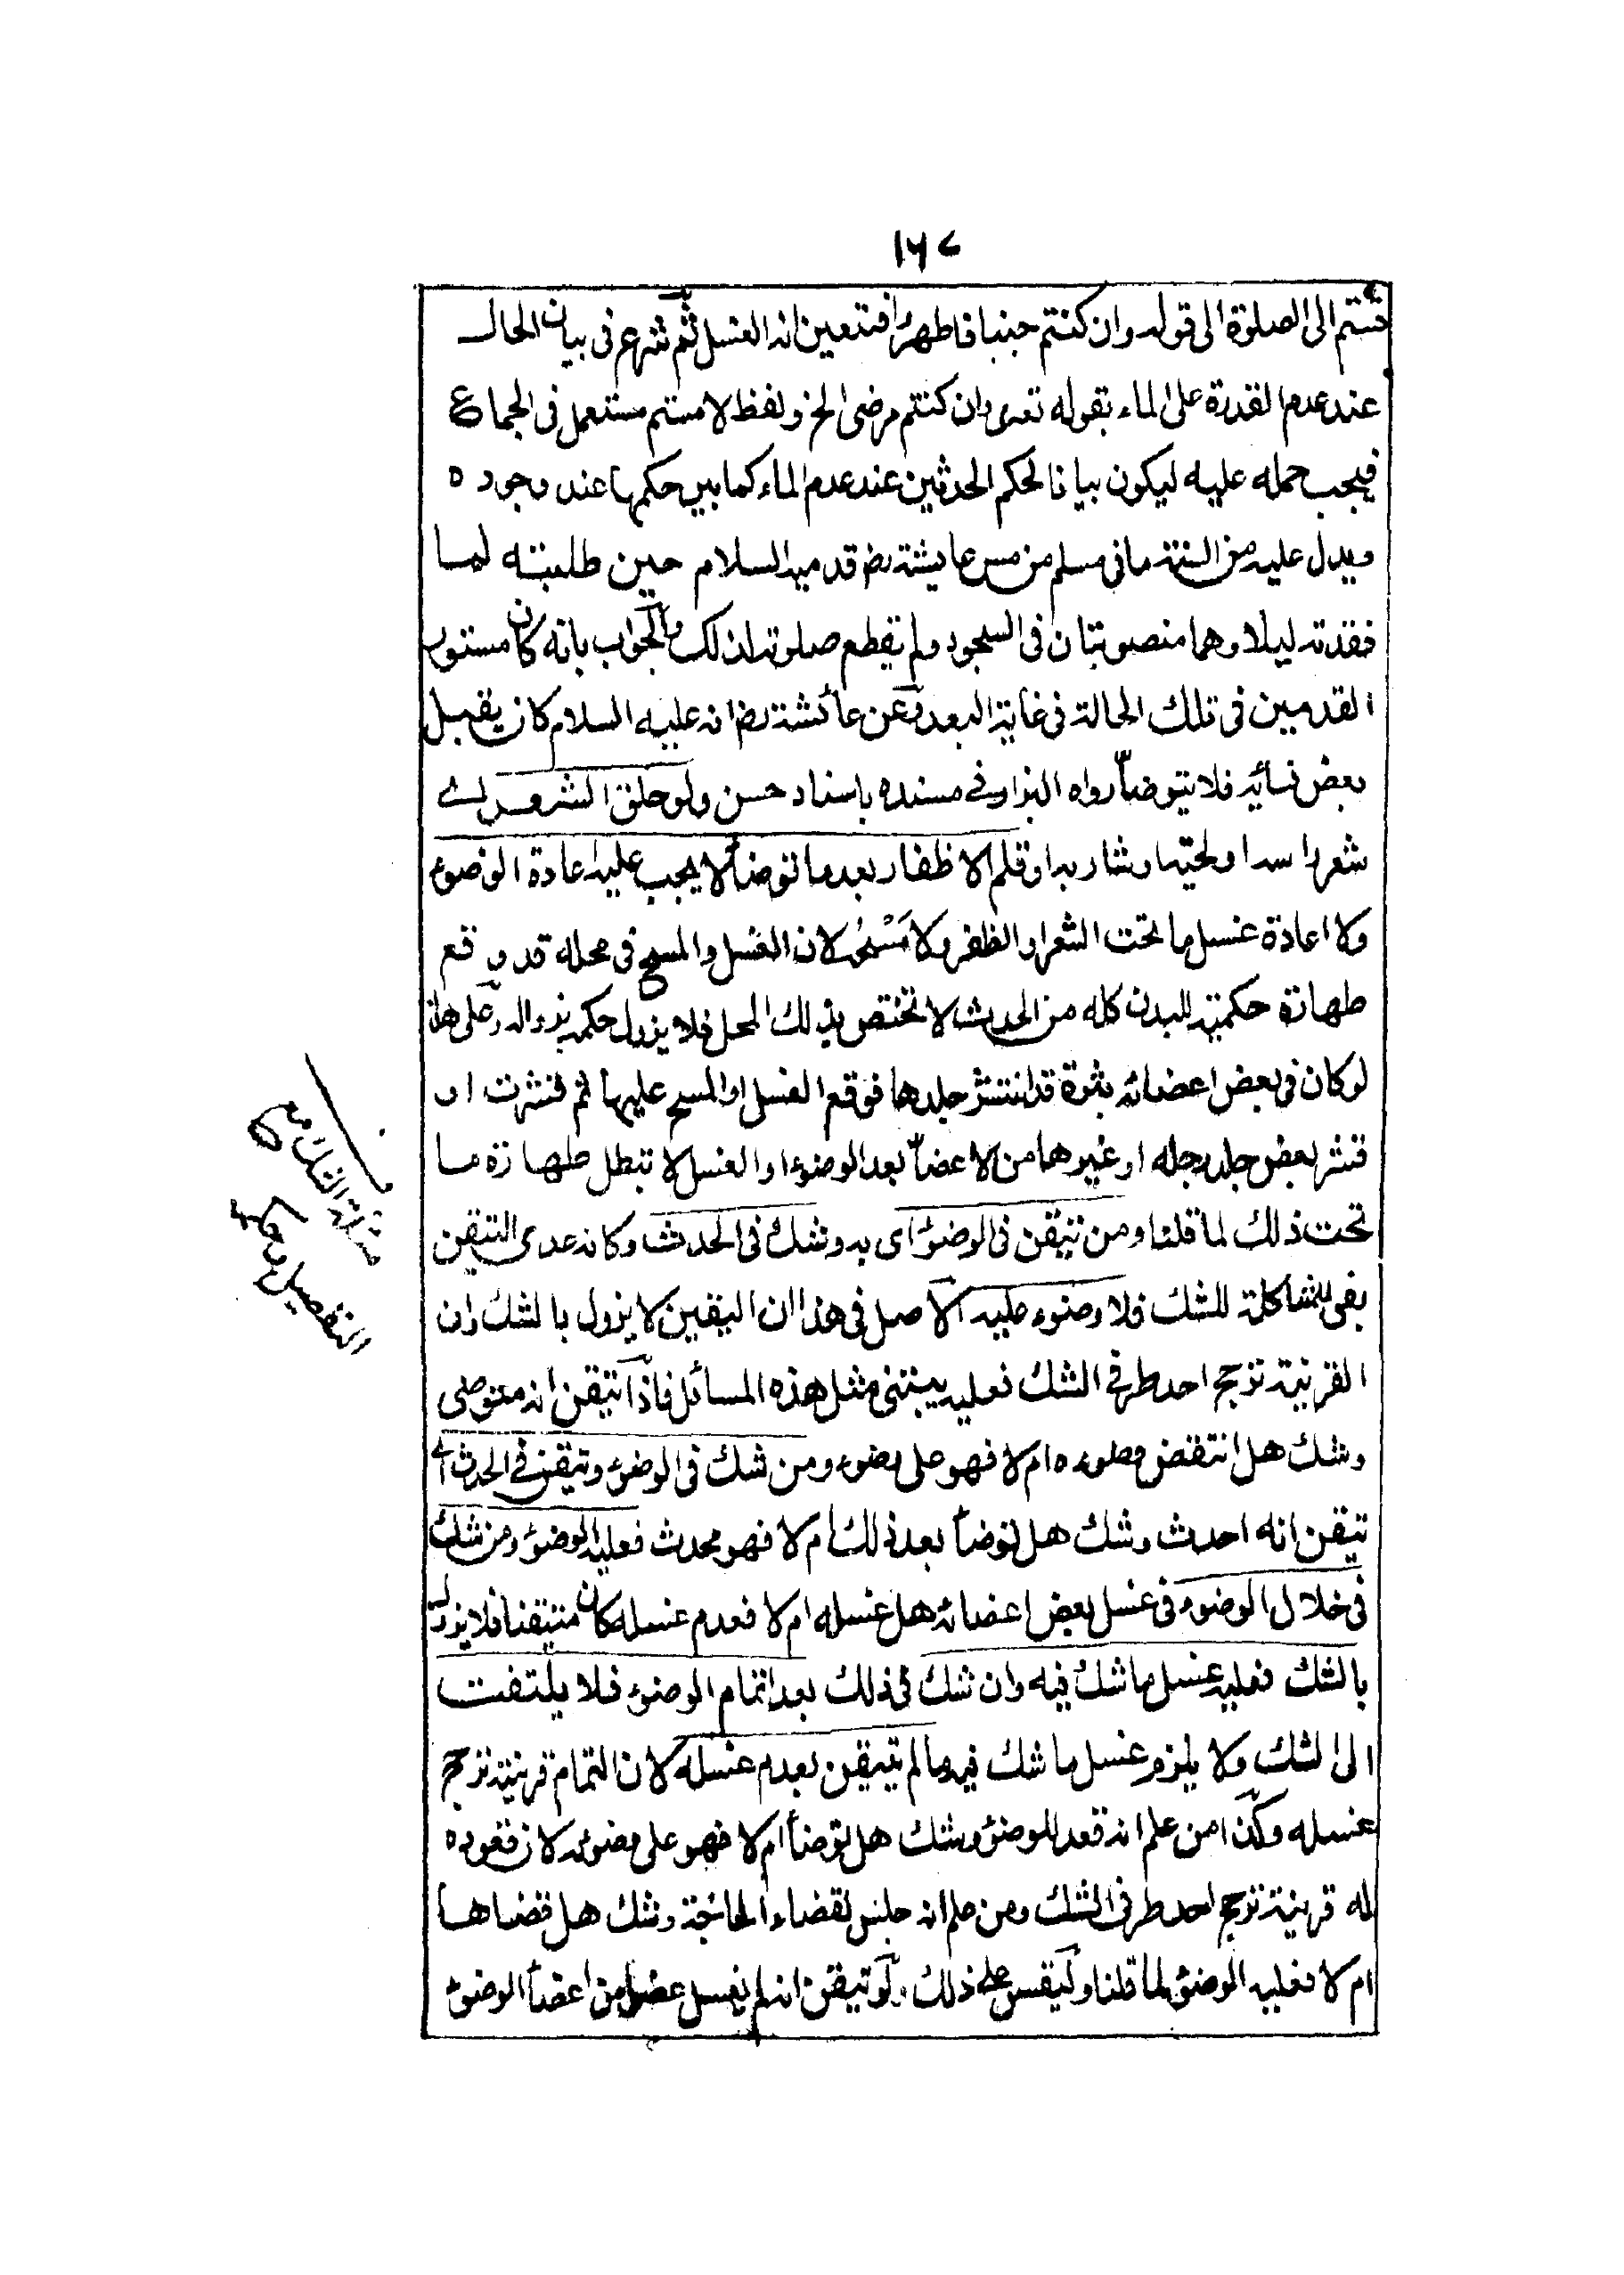 ١٦٧
قمتم الى الصلوة الى قوله وان كنتم جنبا فاطهروا فتعين انه الغسل ثم شرع فى بيان الحال
عند عدم القدرة على الماء بقوله تعالى وان كنتم مرضى الخ ولفظ لامستم مستعمل فى الجماع
فيجب حمله عليه ليكون بيانا لحكم الحدثين عند عدم الماء كما بين حكمهما عند وجوده
ويدل عليه من السنة ما فى مسلم من مس عايشة رض قدميه السلام حين طلبته لما
فقدته ليلا وهما منصوبتان فى السجود ولم يقطع صلوته لذلك والجواب بانه كان مستور
القدمين فى تلك الحالة فى غاية البعد وعن عائشة رض انه عليه السلام كان يقبل
بعض نسائه فلا يتوضأ رواه البزار فى مسنده باسناد حسن ولو حلق الشعر اى
شعر راسه او لحيته او شاربه او قلم الاظفار بعد ما توضأ لا يجب عليه اعادة الوضوء
ولا اعادة غسل ما تحت الشعر او الظفر ولا مسحه لان الغسل والمسح فى محله قد وقع
طهارة حكمية للبدن كله من الحدث لا تختص بذلك المحل فلا يزول حكمه بزواله وعلى هذا
لو كان فى بعض اعضائه بثرة قد انتشر جلدها فوقع الغسل او المسح عليها ثم قشرت او
قشر بعض جلد رجله او غيرها من الاعضأ بعد الوضوء او الغسل لا تبطل طهارة ما
تحت ذلك لما قلنا ومن تيقن فى الوضوء اى به وشك فى الحدث وكانه عدى التيقن
بفى للمشاكلة للشك فلا وضوء عليه الاصل فى هذا ان اليقين لا يزول بالشك وان
القرينة ترجح احد طرفى الشك فعليه يبتنى مثل هذه المسائل فاذا تيقن انه متوضى
وشك هل انتقض وضوءه ام لا فهو على وضوء ومن شك فى الوضوء وتيقن فى الحدث اى
تيقن انه احدث وشك هل توضأ بعد ذلك ام لا فهو محدث فعليه الوضوء ومن شك
فى خلال الوضوء فى غسل بعض اعضائه هل غسله ام لا فعدم غسله كان متيقنا فلا يزول
بالشك فعليه غسل ما شك فيه وان شك فى ذلك بعد اتمام الوضوء فلا يلتفت
الى الشك ولا يلزم غسل ما شك فيه ما لم تيقن بعدم غسله لان التمام قرينة ترجح
غسله وكذا من علم انه قعد للوضوء وشك هل توضأ ام لا فهو على وضوئه لان قعوده
له قرينة ترجح احد طرفى الشك ومن علم انه جلس لقضاء الحاجة وشك هل قضاها
ام لا فعليه الوضوء لما قلنا وليقس على ذلك ولو تيقن انه لم يغسل عضوا من اعضأ الوضوء
مسئلة الشك مع
التفصيل